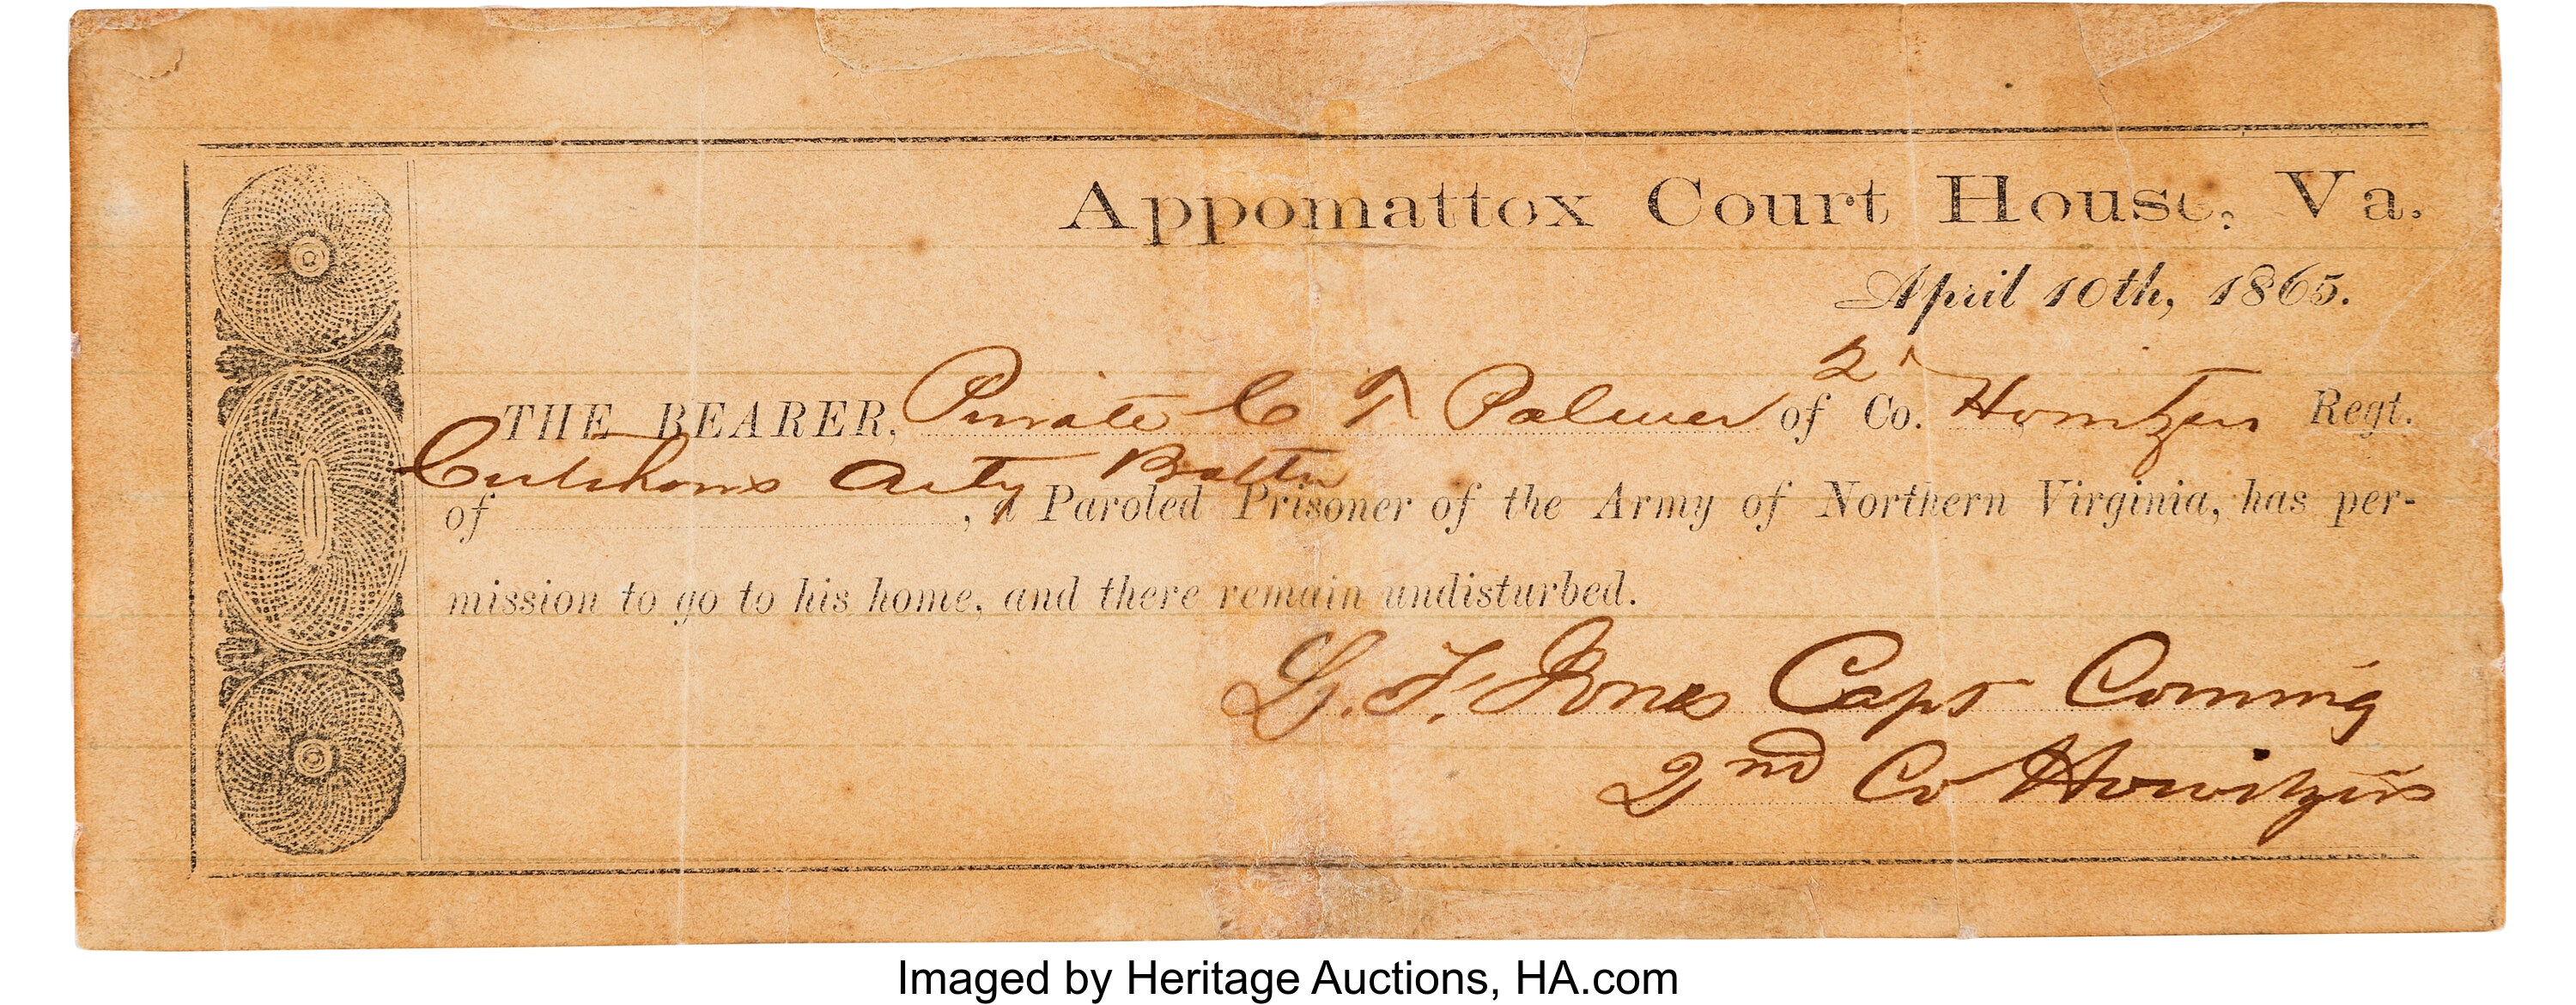 Appomattox Court House, Va.
April 10th, 1865.
THE BEARER, Private C T Palmer of Co. 2d Howitzers Regt.
of Cutshaws Arty Battn, a Paroled Prisoner of the Army of Northern Virginia, has per-
mission to go to his home, and there remain undisturbed.
L. F. Jones Capt Coming
2nd Co Howitzers
Imaged by Heritage Auctions, HA.com